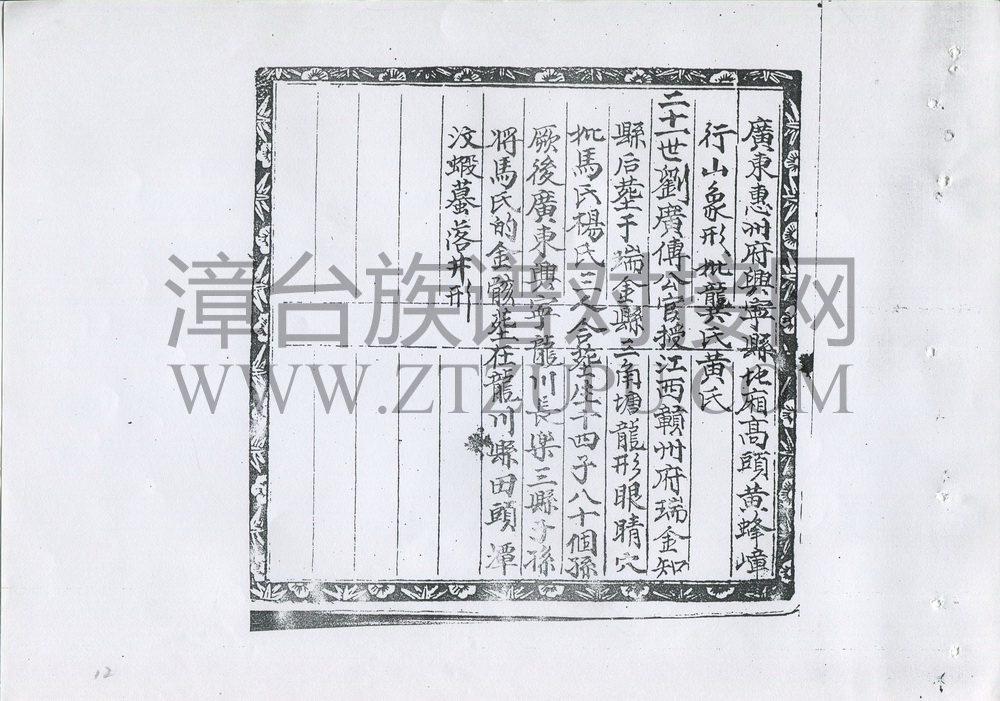 廣東惠州府興寧縣北廂高頭黄蜂嶂
行山象形妣龔氏黄氏
二十一世劉廣傳公官授江西贑州府瑞金知
縣后塟于瑞金縣三角塘龍形眼睛穴
妣馬氏楊氏二人合塟生十四子八十個孫
厥後廣東興寧龍川長樂三縣子孫
將馬氏的金骸塟在龍川縣田頭潭
汶蝦蟇落井形
漳台族谱对接网
WWW.ZTZUPU.COM
12